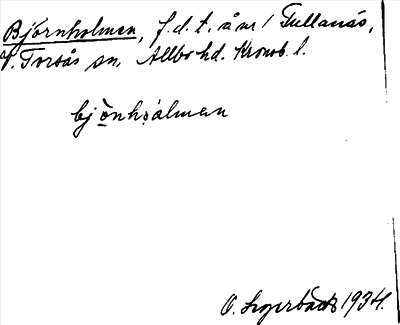 Björnholmen, f.d.t. å nr 1 Tullanäs,
V. Torsås sn. Allbo hd. Kronob. l.
bjö̀nhòlman
O. Segerbäck 1934.